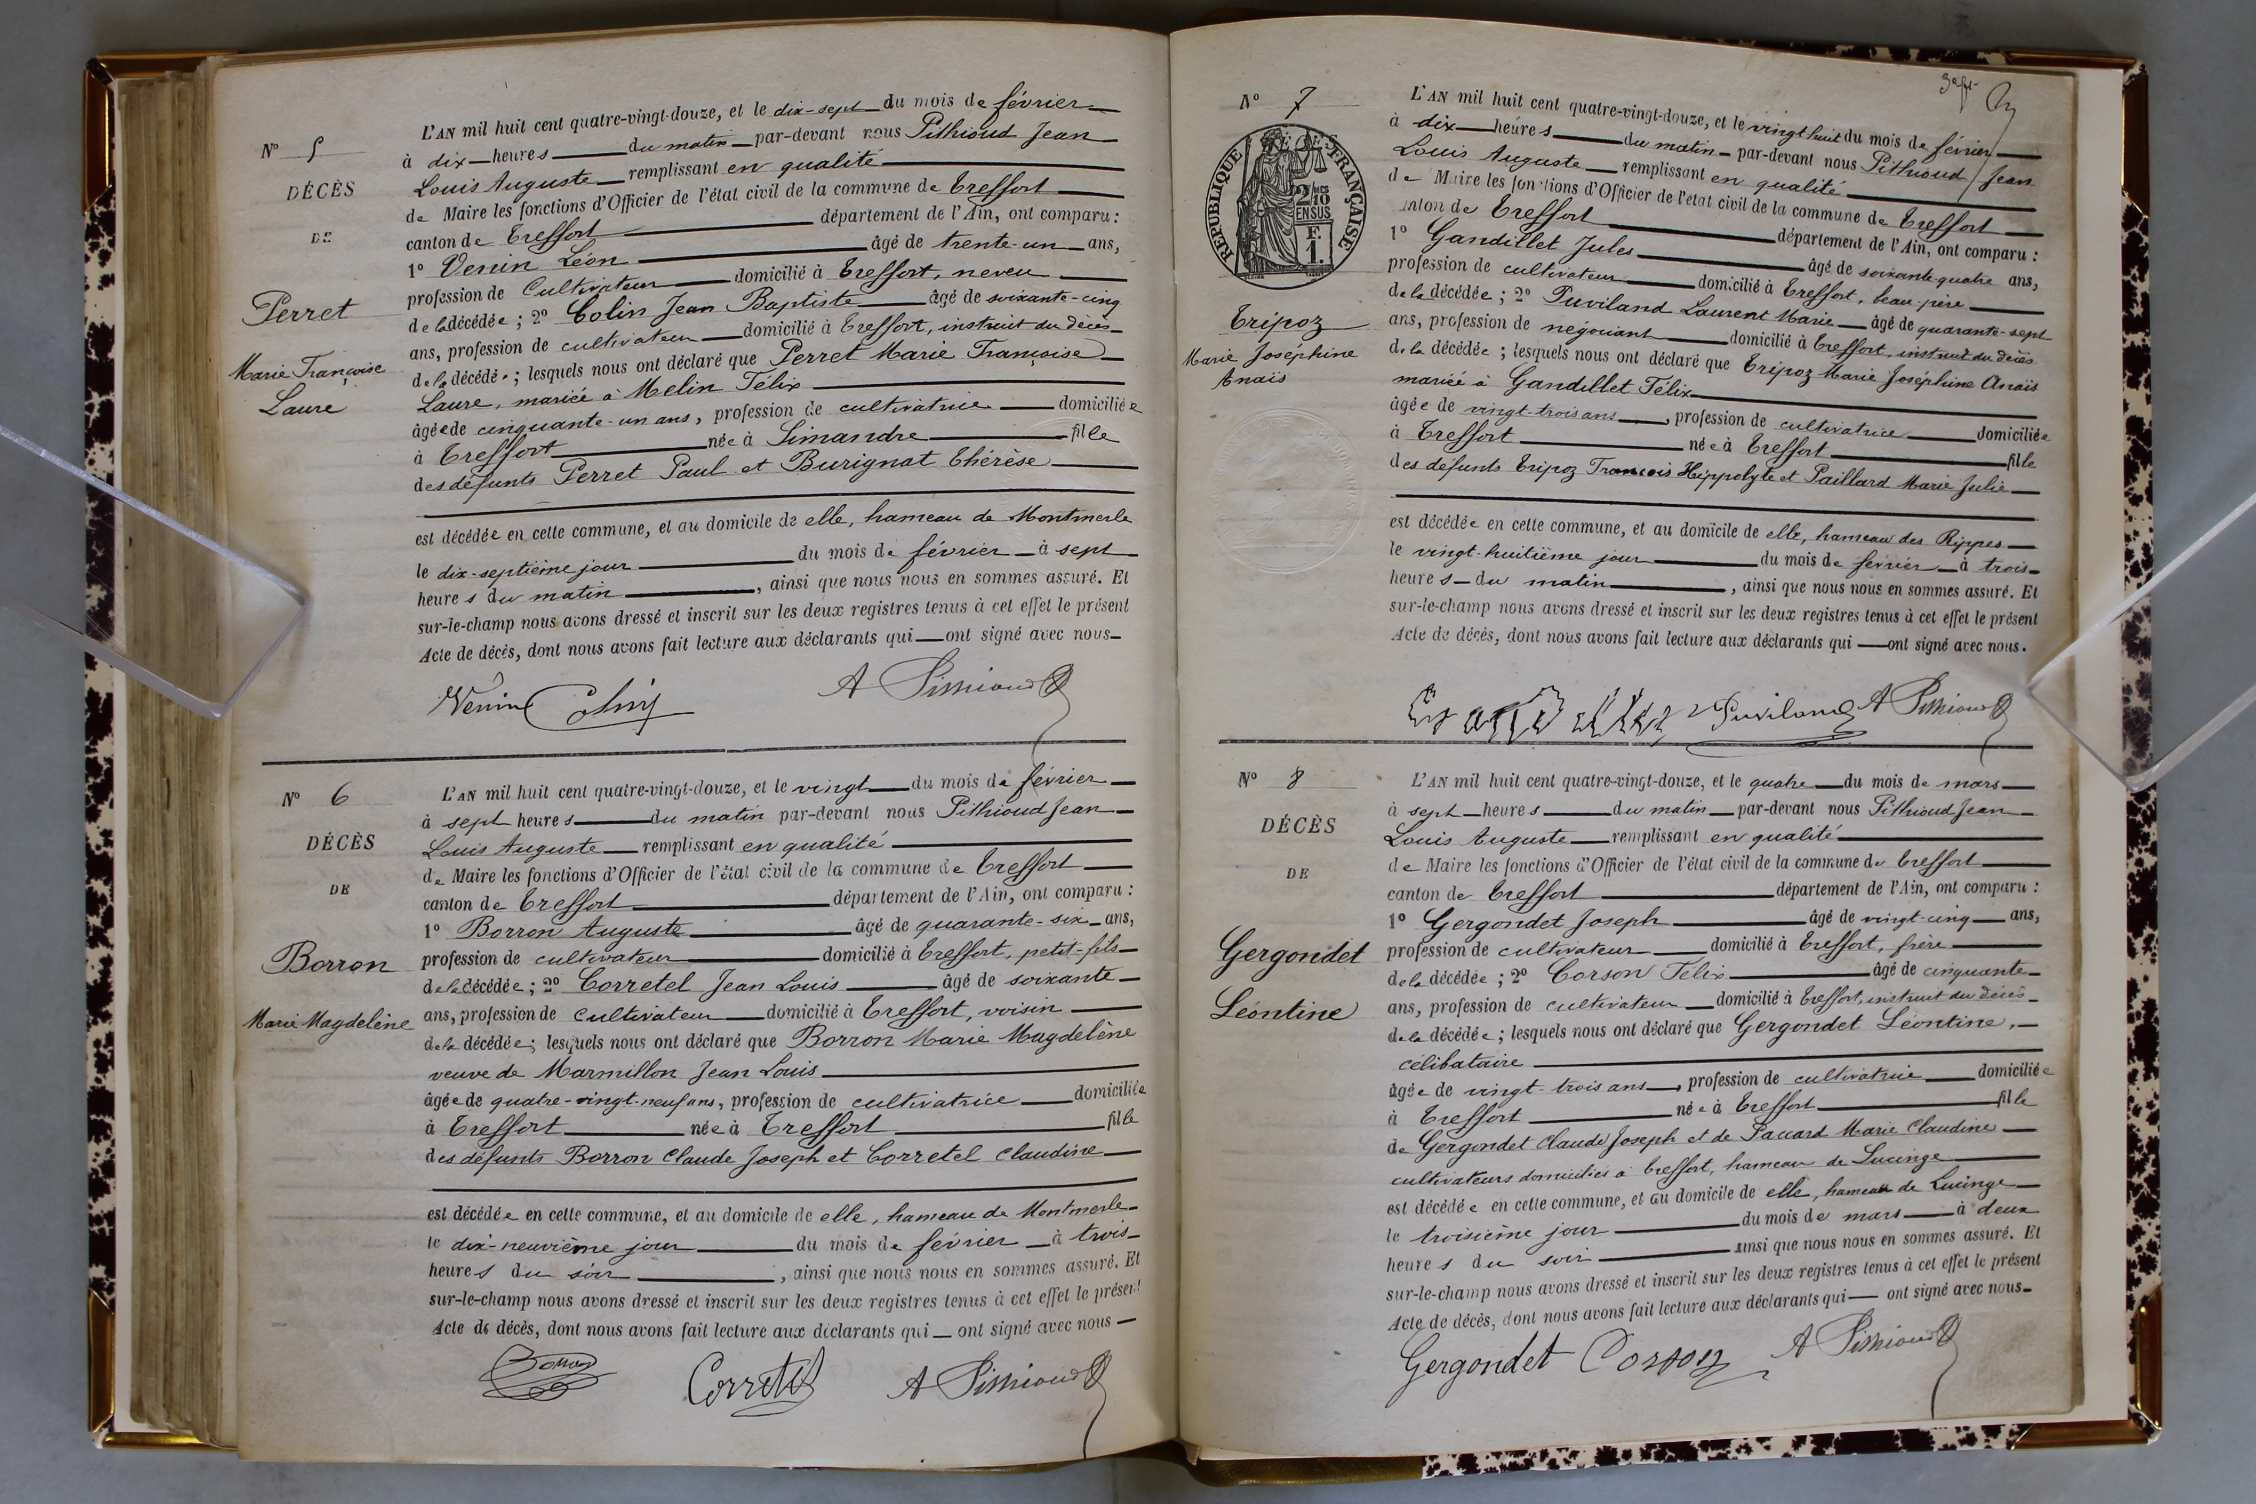 N° 5
DÉCÈS
DE
Perret
Marie Françoise
Laure
L'AN mil huit cent quatre-vingt-douze, et le dix-sept du mois de février
à dix heures du matin par-devant nous Pithioud Jean
Louis Auguste remplissant en qualité
de Maire les fonctions d'Officier de l'état civil de la commune de Treffort
canton de Treffort département de l'Ain, ont comparu :
1° Venin Léon âgé de trente-un ans,
profession de Cultivateur domicilié à Treffort, neveu
de la décédée ; 2° Colin Jean Baptiste âgé de soixante-cinq
ans, profession de cultivateur domicilié à Treffort, instruit du décès
de la décédée ; lesquels nous ont déclaré que Perret Marie Françoise
Laure, mariée à Melin Félix
âgée de cinquante-un ans, profession de cultivatrice domiciliée
à Treffort née à Simandre fille
des défunts Perret Paul et Burignat Thérèse
est décédée en cette commune, et au domicile de elle, hameau de Montmerle
le dix-septième jour du mois de février à sept
heures du matin, ainsi que nous nous en sommes assuré. Et
sur-le-champ nous avons dressé et inscrit sur les deux registres tenus à cet effet le présent
Acte de décès, dont nous avons fait lecture aux déclarants qui ont signé avec nous
Venin Colin A Pithioud
N° 6
DÉCÈS
DE
Borron
Marie Magdelène
L'AN mil huit cent quatre-vingt-douze, et le vingt du mois de février
à sept heures du matin par-devant nous Pithioud Jean
Louis Auguste remplissant en qualité
de Maire les fonctions d'Officier de l'état civil de la commune de Treffort
canton de Treffort département de l'Ain, ont comparu :
1° Borron Auguste âgé de quarante-six ans,
profession de cultivateur domicilié à Treffort, petit-fils
de la décédée ; 2° Corretel Jean Louis âgé de soixante
ans, profession de cultivateur domicilié à Treffort, voisin
de la décédée ; lesquels nous ont déclaré que Borron Marie Magdelène
veuve de Marmillon Jean Louis
âgée de quatre-vingt-neuf ans, profession de cultivatrice domiciliée
à Treffort née à Treffort fille
des défunts Borron Claude Joseph et Corretel Claudine
est décédée en cette commune, et au domicile de elle, hameau de Montmerle
le dix-neuvième jour du mois de février à trois
heures du soir, ainsi que nous nous en sommes assuré. Et
sur-le-champ nous avons dressé et inscrit sur les deux registres tenus à cet effet le présent
Acte de décès, dont nous avons fait lecture aux déclarants qui ont signé avec nous
Borron Corretel A Pithioud
N° 7
RÉPUBLIQUE FRANÇAISE
2/10 EN SUS
F. 1.
Tripoz
Marie Joséphine
Anaïs
L'AN mil huit cent quatre-vingt-douze, et le vingt huit du mois de février
à dix heures du matin par-devant nous Pithioud Jean
Louis Auguste remplissant en qualité
de Maire les fonctions d'Officier de l'état civil de la commune de Treffort
canton de Treffort département de l'Ain, ont comparu :
1° Gandillet Jules âgé de soixante quatre ans,
profession de cultivateur domicilié à Treffort, beau-père
de la décédée ; 2° Puviland Laurent Marie âgé de quarante-sept
ans, profession de négociant domicilié à Treffort, instruit du décès
de la décédée ; lesquels nous ont déclaré que Tripoz Marie Joséphine Anaïs
mariée à Gandillet Félix
âgée de vingt-trois ans, profession de cultivatrice domiciliée
à Treffort née à Treffort fille
des défunts Tripoz François Hippolyte et Paillard Marie Julie
est décédée en cette commune, et au domicile de elle, hameau des Rippes
le vingt-huitième jour du mois de février à trois
heures du matin, ainsi que nous nous en sommes assuré. Et
sur-le-champ nous avons dressé et inscrit sur les deux registres tenus à cet effet le présent
Acte de décès, dont nous avons fait lecture aux déclarants qui ont signé avec nous.
Gandillet Puviland A Pithioud
N° 8
DÉCÈS
DE
Gergondet
Léontine
L'AN mil huit cent quatre-vingt-douze, et le quatre du mois de mars
à sept heures du matin par-devant nous Pithioud Jean
Louis Auguste remplissant en qualité
de Maire les fonctions d'Officier de l'état civil de la commune de Treffort
canton de Treffort département de l'Ain, ont comparu :
1° Gergondet Joseph âgé de vingt-cinq ans,
profession de cultivateur domicilié à Treffort, frère
de la décédée ; 2° Corson Félix âgé de cinquante
ans, profession de cultivateur domicilié à Treffort, instruit du décès
de la décédée ; lesquels nous ont déclaré que Gergondet Léontine,
célibataire
âgée de vingt-trois ans, profession de cultivatrice domiciliée
à Treffort née à Treffort fille
de Gergondet Claude Joseph et de Paccard Marie Claudine
cultivateurs domiciliés à Treffort, hameau de Lucinge
est décédée en cette commune, et au domicile de elle, hameau de Lucinge
le troisième jour du mois de mars à deux
heures du soir ainsi que nous nous en sommes assuré. Et
sur-le-champ nous avons dressé et inscrit sur les deux registres tenus à cet effet le présent
Acte de décès, dont nous avons fait lecture aux déclarants qui ont signé avec nous
Gergondet Corson A Pithioud